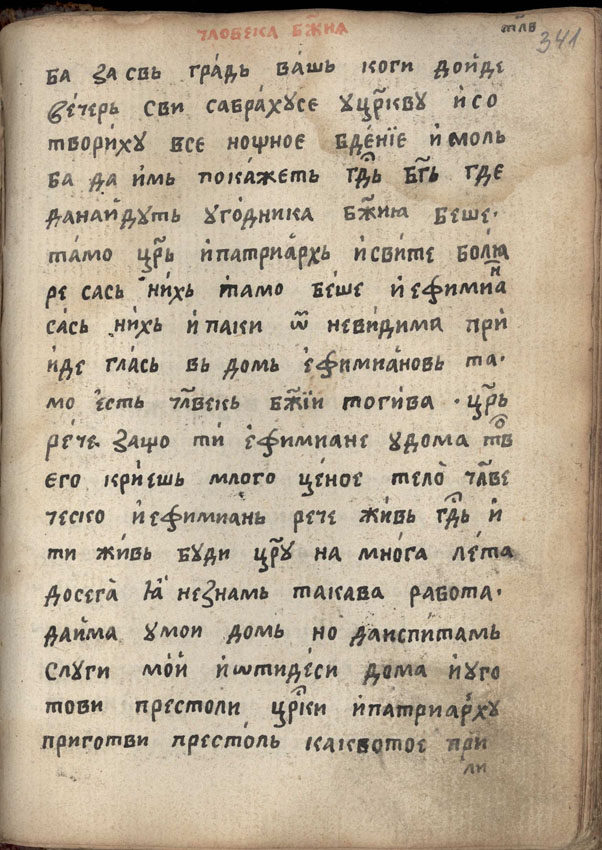 члове́ка бж҃їиа
тл҃в 341
ба за свь гра́дь ва́шь коги дойде
ве́черь сви сабра́хусе уцр҃кву и҆ со
твори́ху все нощное бде́нїе и҆ моль
ба да и҆мь пока́жеть гд҃ь бг҃ь где
дана́йдуть уго́дника бж҃їю беше·
та́мо цр҃ь и҆патриа́рхь и҆сви́те болю
ре сась ни́хь та́мо бе́ше и҆ ефимиан
са́сь ни́хь и҆ паки ѿ неви́дима при
и́де гла́сь вь домь е҆фимиа́новь та·
мо е҆сть чл҃векь бж҃їи тоги́ва · цр҃ь
ре́че защо ти е҆фимиане удома тво
е҆го кри́ешь млого це́ное тело̀ чл҃ве
ческо и҆ефимиа́нь рече жи́вь гд҃ь и҆
ти жи́вь буди цр҃у на мно́га ле́та
досега̀ ꙗ҆ незнамь такава работа·
дайма у мои домь но даиспи́тамь
слуги мо́й и҆ѿтиде́си дома и҆уго
тови престоли цр҃ки и҆патриа́рху
приготви престо́ль каквотое при
ли